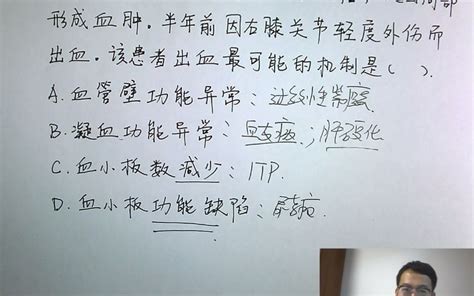 形成血肿.半年前因右膝关节轻度外伤而
出血.该患者出血最可能的机制是( ).
A.血管壁功能异常:过敏性紫癜
B.凝血功能异常:血友病;肝硬化
C.血小板数减少:ITP.
D.血小板功能缺陷: